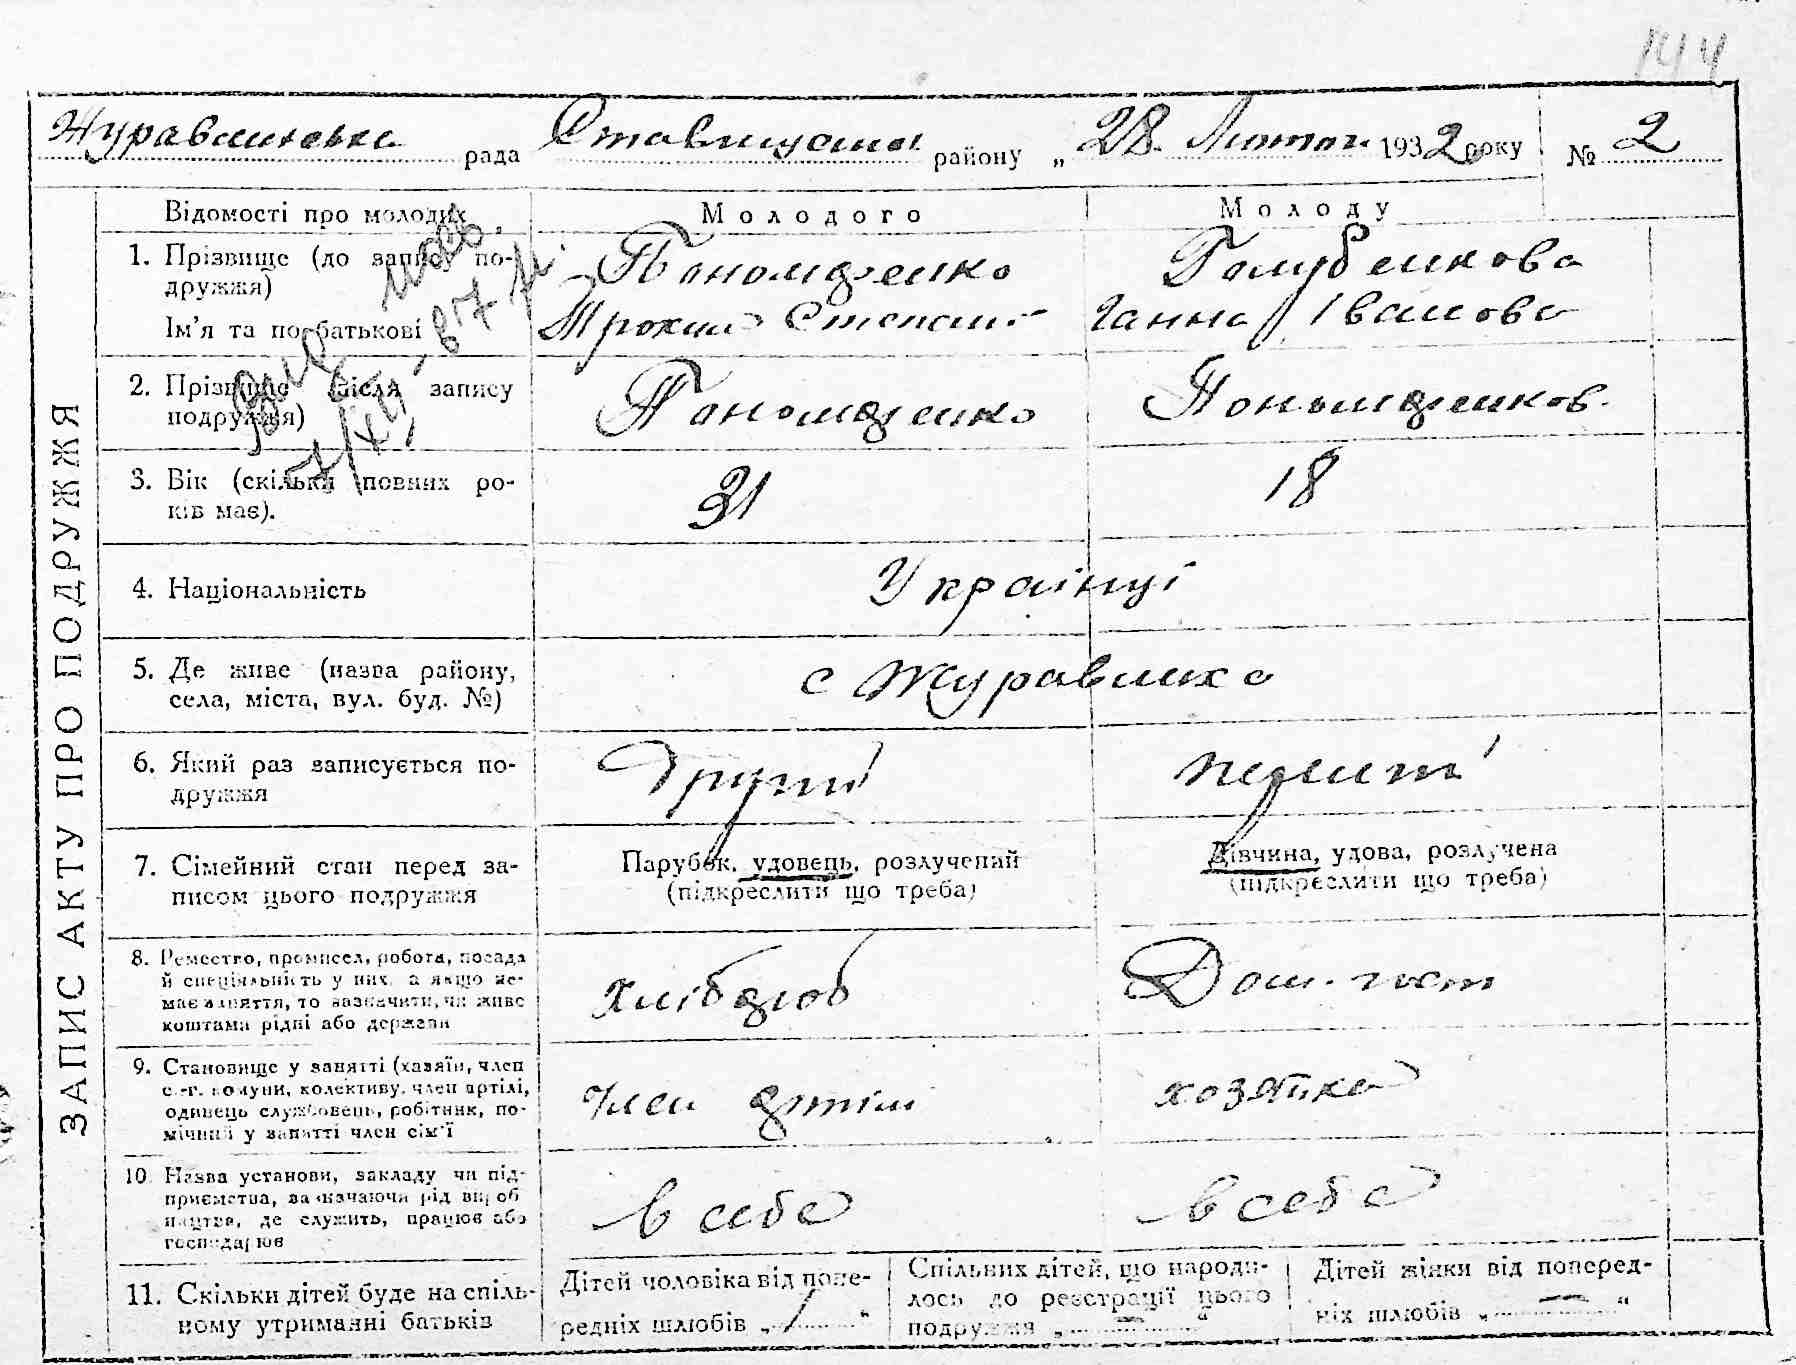 144
Журавлинська рада Ставищан району „28" Лютого 1932 року № 2
ЗАПИС АКТУ ПРО ПОДРУЖЖЯ
Відомості про молодих Молодого Молоду
1. Прізвище (до запису по- Пономаренко Голубенкова
дружжя)
Ім'я та по батькові Трохим Степан Ганна Іванова
2. Прізвище (після запису Пономаренко Пономаренков.
подружжя)
3. Вік (скільки повних ро- 31 18
ків має).
4. Національність Українці
5. Де живе (назва району, с Журавлиха
села, міста, вул. буд. №)
6. Який раз записується по- другий перший
дружжя
7. Сімейний стан перед за- Парубок, удовець, розлучений Дівчина, удова, розлучена
писом цього подружжя (підкреслити що треба) (підкреслити що треба)
8. Ремество, промисел, робота, посада
й спеціяльність у них, а якщо не- хлібороб Дом. госп
має заняття, то зазначити, чи живе
коштами рідні або держави
9. Становище у занятті (хазяїн, член
с.-г. комуни, колективу, член артілі, член артіли хозяйка
одинець службовець, робітник, по-
мічний у занятті член сім'ї
10. Назва установи, закладу чи під-
приємства, зазначаючи рід вироб в себе в себе
ництва, де служить, працює або
господарює
11. Скільки дітей буде на спіль-
ному утриманні батьків
Дітей чоловіка від попе-
редніх шлюбів „ 1 "
Спільних дітей, що народи-
лось до реєстрації цього
подружжя „ — "
Дітей жінки від поперед-
ніх шлюбів „ — "